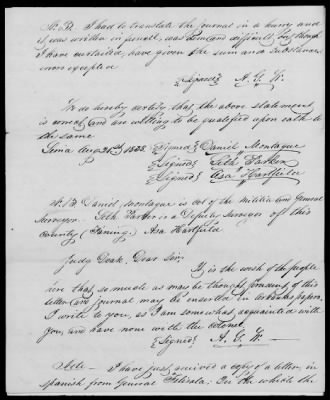 N. B. I had to translate the journal in a hurry and
it was written in pencil, was somewhat difficult, but though
I have curtailed, have given the sum and substance
errors excepted
(Signed) A. G. W.
We do hereby certify that the above statement
is correct, and are willing to be qualified upon oath to
the same
Aug 21st 1858 (Signed) Daniel Montague
(Signed) Seth Parker
(Signed) Asa Hartfield
N. B. Daniel Montague is Col of the Militia and General
Surveyor. Seth Parker is a Deputy Surveyor of this
County (Fannin). Asa Hartfield
Judg Doak, Dear Sir,
It is the wish of the people
here that so much as may be thought prudent, of this
letter and journal may be inserted in Arkansas papers.
I write to you, as I am somewhat acquainted with
you, and have none with the Colonel
(Signed) A. G. W.
Note — I have just received a copy of a letter, in
Spanish from General Filisola; In the which the